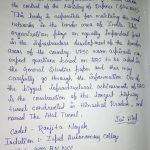 the control of the Ministry of Defence (India).
This body is responsible for maintaining the road
networks in the border area of India. The
organisation plays an equally important role
in the infrastructure development of the border
areas of the country. UPSC exam aspirants can
expect questions based on BRO to be asked in
the General Studies paper and thus may
carefully go through the information. One of
the biggest infrastructural achievements of BRO
is the construction of the longest highway
tunnel constructed in Himachal Pradesh, and
named The Atal Tunnel.
Jai Hind
Cadet - Ranjita Nayak
Institution - Autonomous College